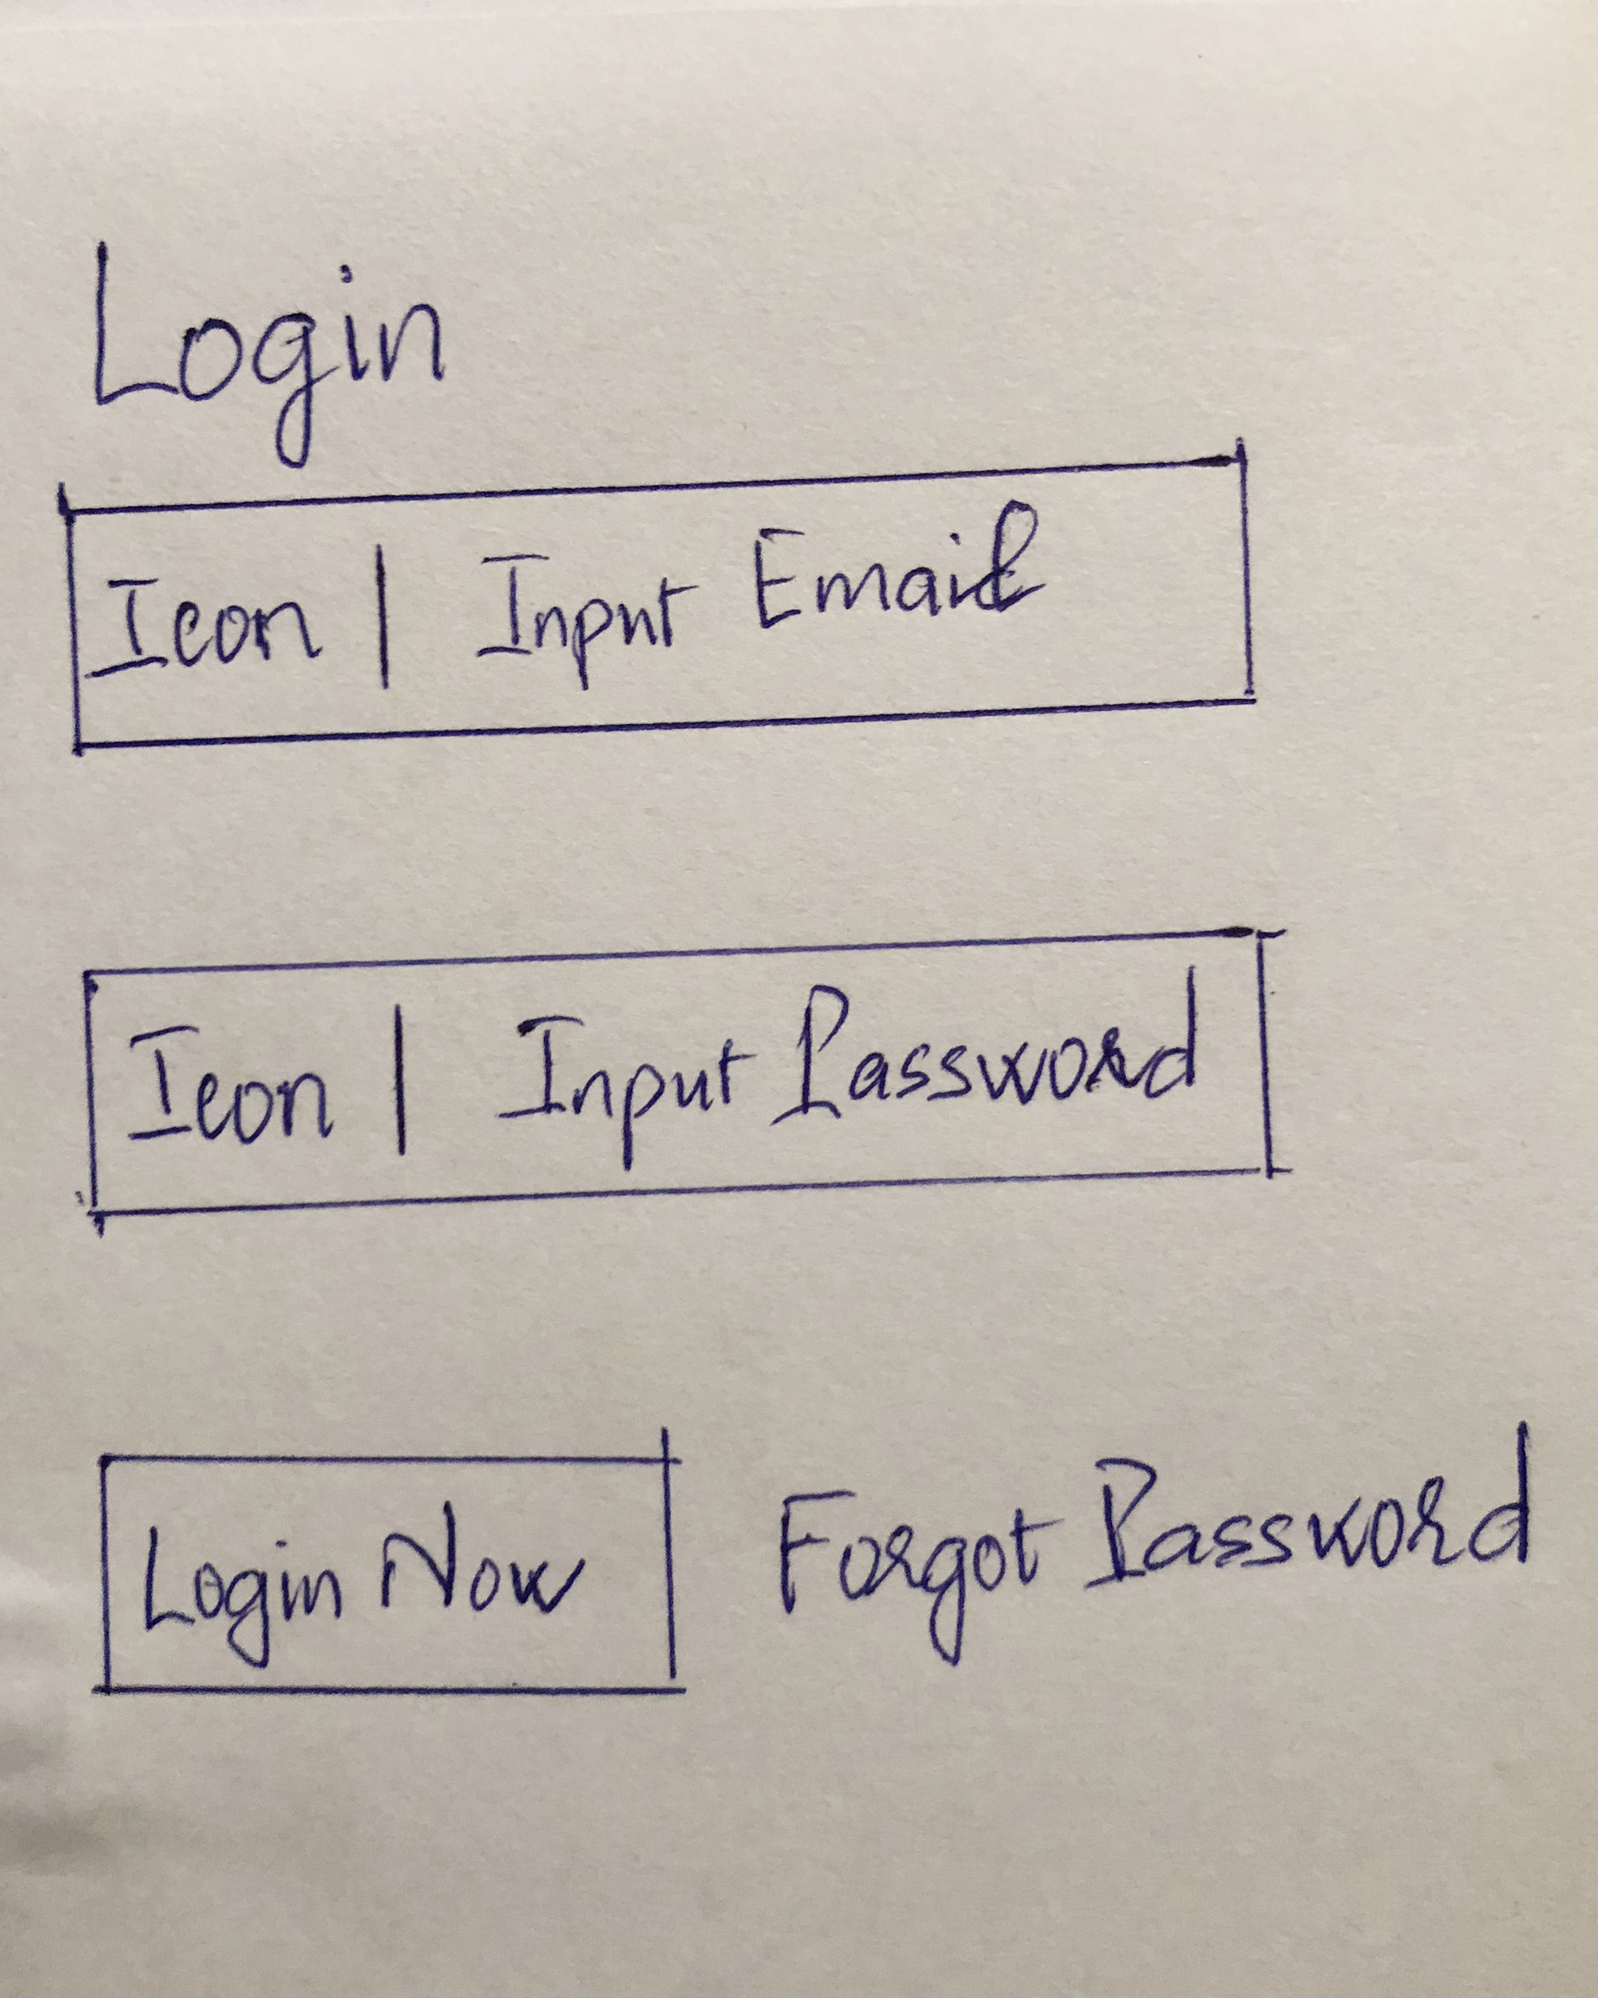 Login
Icon | Input Email
Icon | Input Password
Login Now Forgot Password